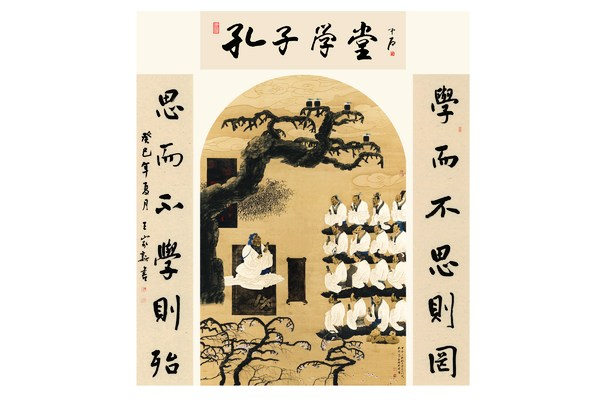 孔子学堂
學而不思則罔
思而不學則殆
癸巳年夏月王家新書